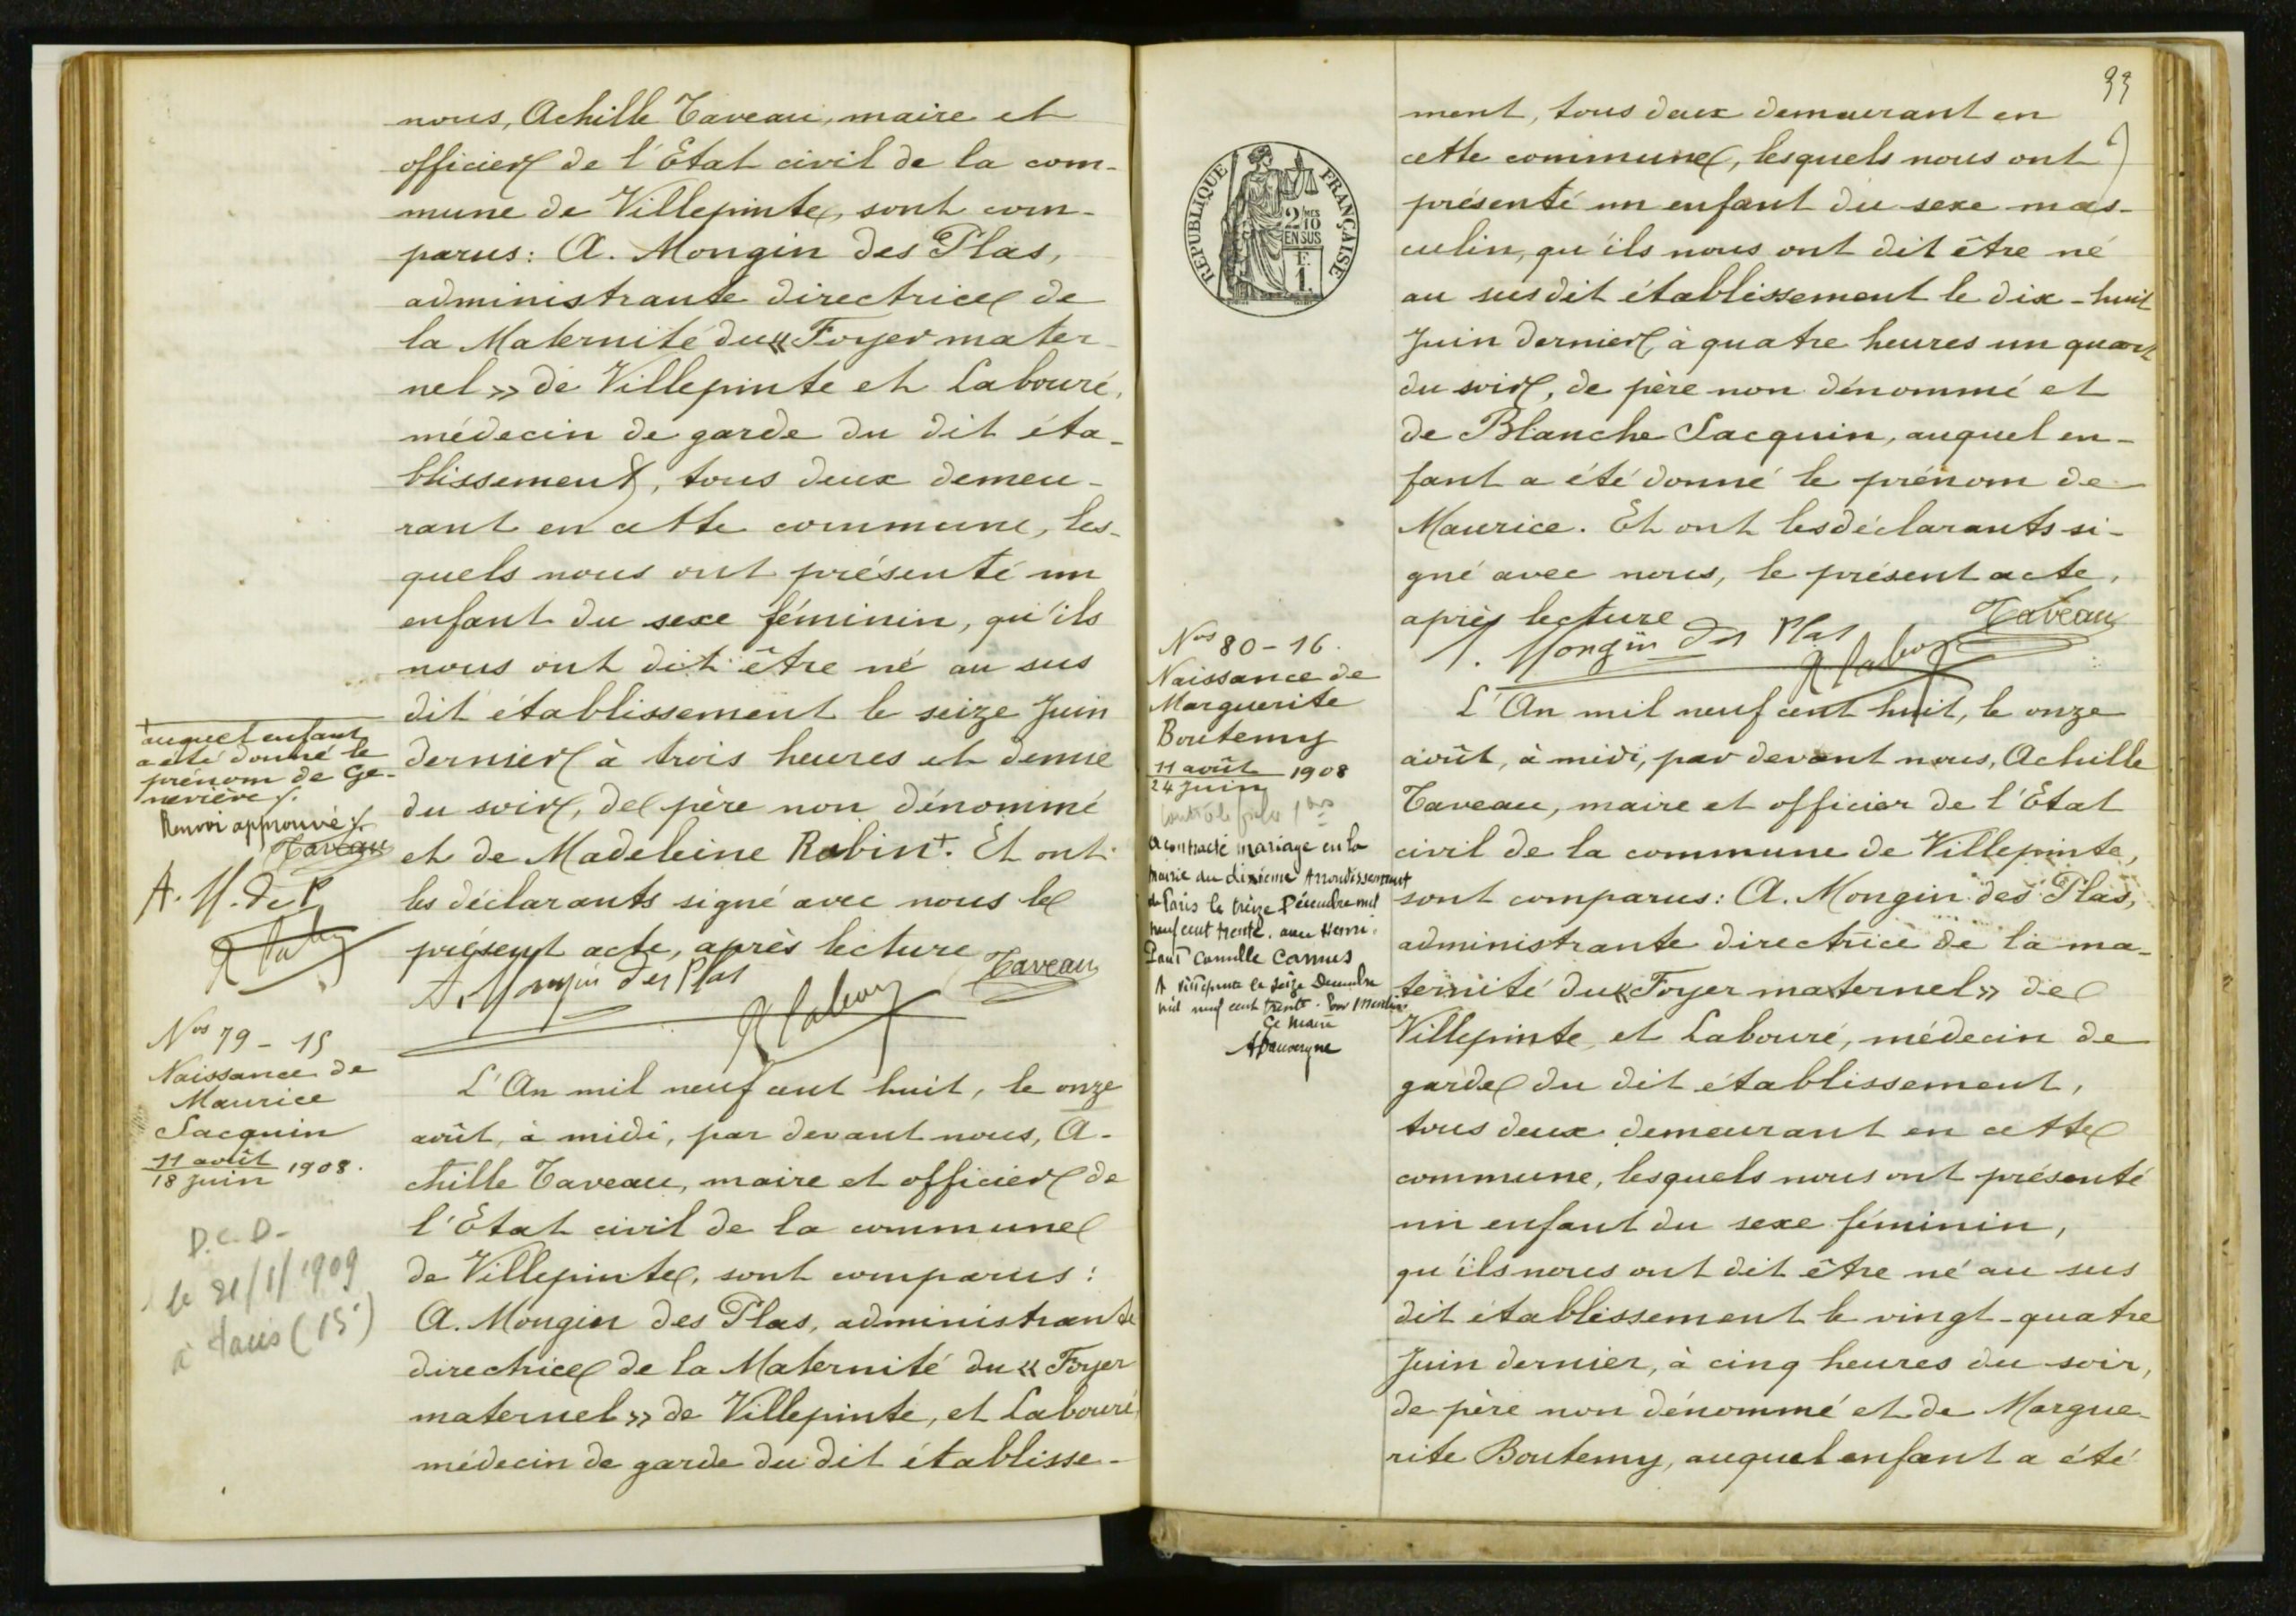 nous, Achille Taveau, maire et
officier de l'État civil de la com-
mune de Villepinte, sont com-
parus: A. Mongin des Plas,
administrante directrice de
la Maternité du « Foyer mater-
nel » de Villepinte et Labouré,
médecin de garde du dit éta-
blissement, tous deux demeu-
rant en cette commune, les-
quels nous ont présenté un
enfant du sexe féminin, qu'ils
nous ont dit être né au sus
dit établissement le seize Juin
dernier à trois heures et demie
du soir, de père non dénommé
et de Madeleine Robin +. Et ont
les déclarants signé avec nous le
présent acte, après lecture
A. Mongin des Plas
Taveau
auquel enfant
a été donné le
prénom de Ge-
neviève /.
Renvoi approuvé /.
Taveau
A. M. de P
Nos 79 - 15
Naissance de
Maurice
Jacquin
11 août
18 juin 1908.
D.C.D.
le 21/1/1909
à Paris (15e)
L'An mil neuf cent huit, le onze
août, à midi, par devant nous, A-
chille Taveau, maire et officier de
l'État civil de la commune
de Villepinte, sont comparus:
A. Mongin des Plas, administrante
directrice de la Maternité du « Foyer
maternel » de Villepinte, et Labouré,
médecin de garde du dit établisse-
33
RÉPUBLIQUE FRANÇAISE
2/10 MES
EN SUS
F.
1.
ment, tous deux demeurant en
cette commune, lesquels nous ont
présenté un enfant du sexe mas-
culin, qu'ils nous ont dit être né
au susdit établissement le dix-huit
Juin dernier, à quatre heures un quart
du soir, de père non dénommé et
de Blanche Jacquin, auquel en-
fant a été donné le prénom de
Maurice. Et ont les déclarants si-
gné avec nous, le présent acte,
après lecture
A. Mongin des Plas
Taveau
Nos 80 - 16.
Naissance de
Marguerite
Boutemy
11 août
24 Juin 1908
A contracté mariage en la
mairie du dixième Arrondissement
de Paris le treize Décembre mil
neuf cent trente. avec Henri.
Paul Camille Camus
A Villepinte le seize Decembre
mil neuf cent trente. Pour Mention
Le Maire
L'An mil neuf cent huit, le onze
août, à midi, par devant nous, Achille
Taveau, maire et officier de l'État
civil de la commune de Villepinte,
sont comparus: A. Mongin des Plas,
administrante directrice de la ma-
ternité du « Foyer maternel » de
Villepinte, et Labouré, médecin de
garde du dit établissement,
tous deux demeurant en cette
commune, lesquels nous ont présenté
un enfant du sexe féminin,
qu'ils nous ont dit être né au sus
dit établissement le vingt-quatre
Juin dernier, à cinq heures du soir,
de père non dénommé et de Margue-
rite Boutemy, auquel enfant a été